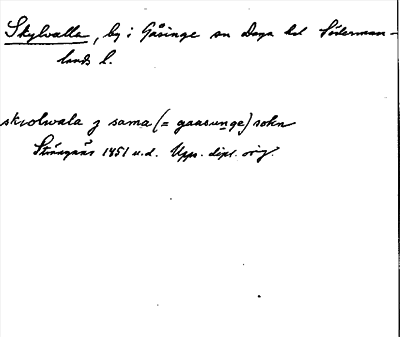 Skylvalla, by i Gåsinge sn Daga hd Söderman-
lands l.
skiolwala j sama (= gaasunge) sokn
Strängnäs 1451 u.d. Upps. dipl. orig.